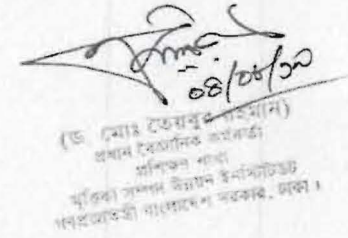 ০৪/০৮/১০
(ড. মোঃ তৈয়বুর রহমান)
প্রধান বৈজ্ঞানিক কর্মকর্তা
প্রশিক্ষণ শাখা
মৃত্তিকা সম্পদ উন্নয়ন ইনস্টিটিউট
গণপ্রজাতন্ত্রী বাংলাদেশ সরকার, ঢাকা।